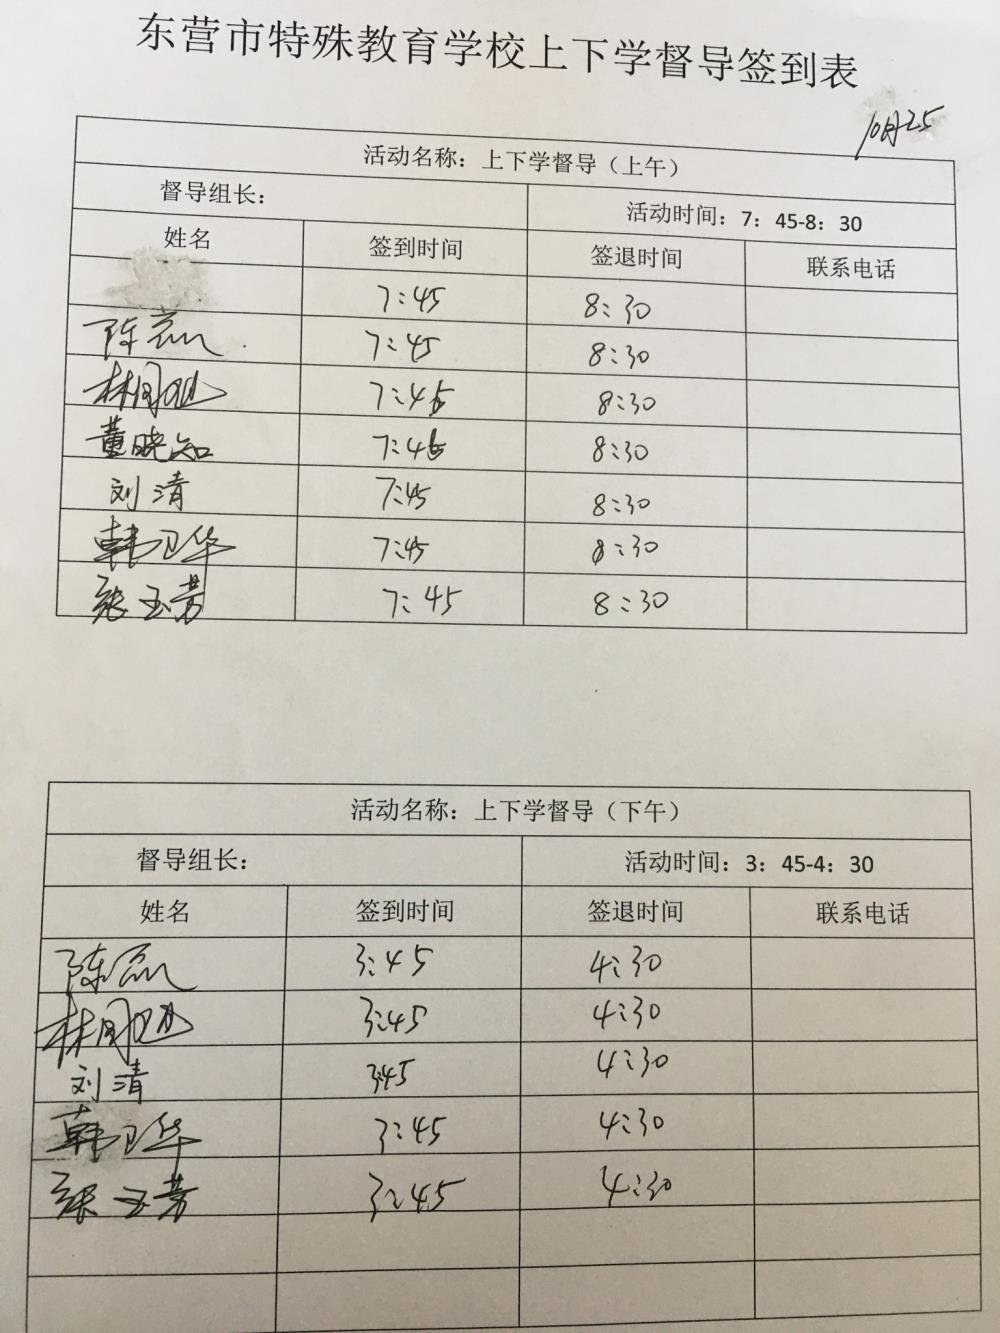 东营市特殊教育学校上下学督导签到表
10月25
活动名称：上下学督导（上午）
督导组长： 活动时间：7：45-8：30
姓名 签到时间 签退时间 联系电话
7:45 8:30
陈磊 7:45 8:30
林 7:45 8:30
董晓知 7:45 8:30
刘清 7:45 8:30
韩卫华 7:45 8:30
张玉芳 7:45 8:30
活动名称：上下学督导（下午）
督导组长： 活动时间：3：45-4：30
姓名 签到时间 签退时间 联系电话
陈磊 3:45 4:30
林 3:45 4:30
刘清 3:45 4:30
韩卫华 3:45 4:30
张玉芳 3:45 4:30